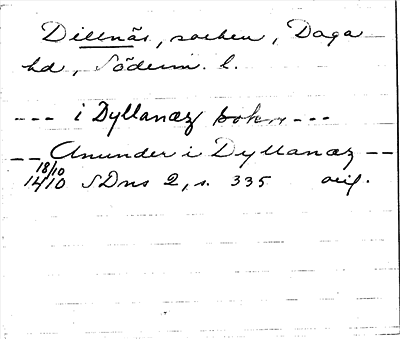 Dillnäs, socken, Daga
hd, Söderm. l.
--- i Dyllanæz sokn ---
-- Anunder i Dyllanæz --
18/10
14/10 SDns 2, s. 335 orig.